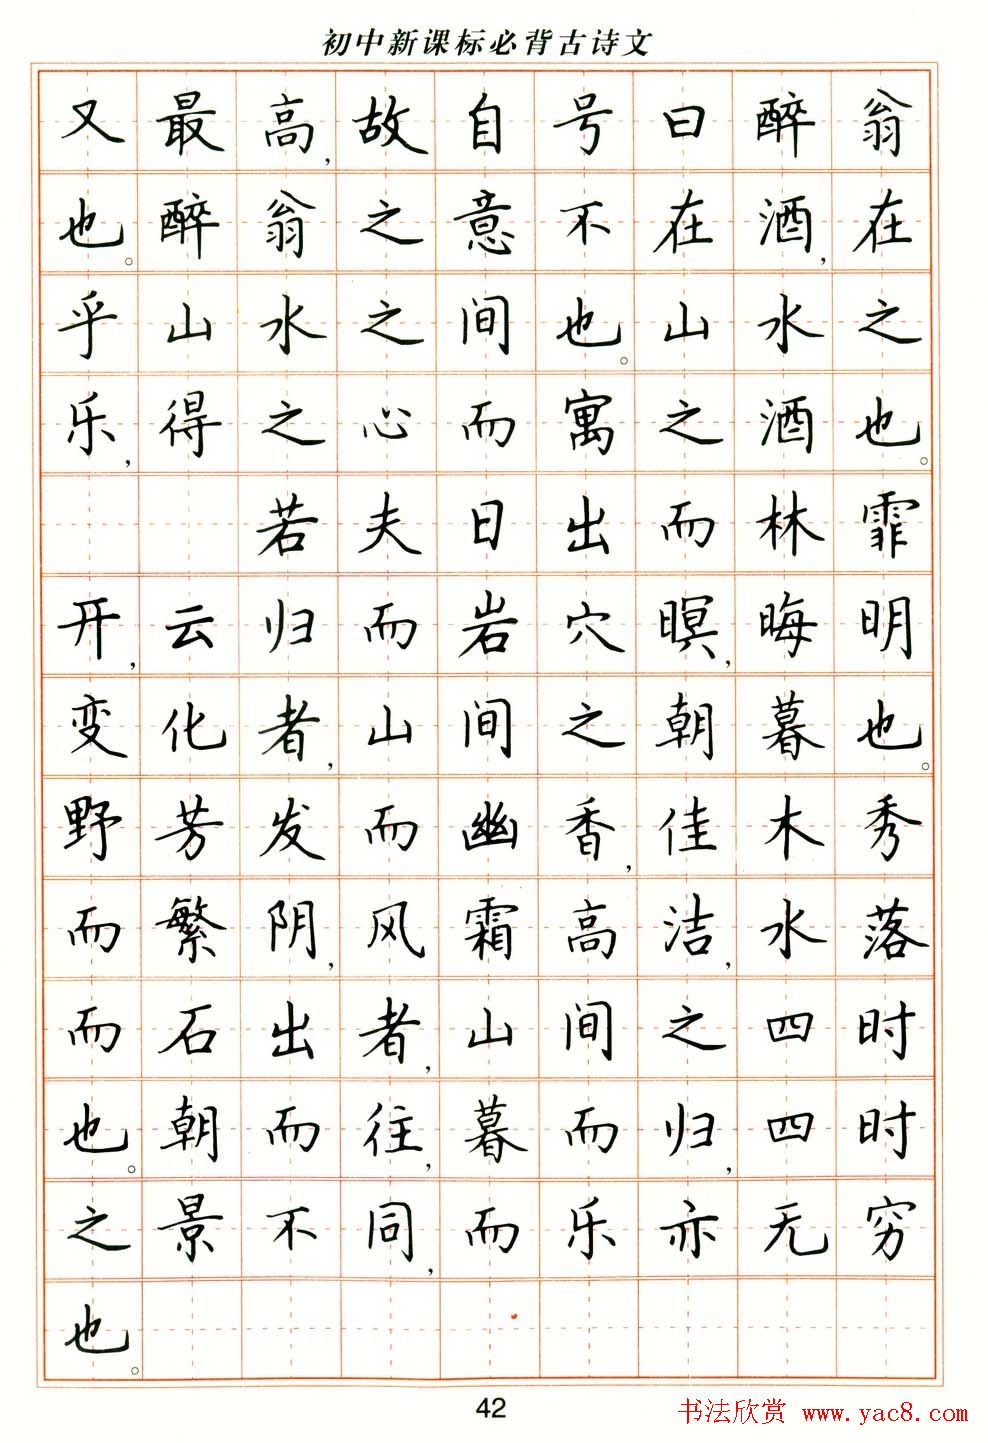 初中新课标必背古诗文
又最高，故自号曰醉翁
也。醉翁之意不在酒，在
乎山水之间也。山水之
乐，得之心而寓之酒也。
若夫日出而林霏
开，云归而岩穴暝，晦明
变化者，山间之朝暮也。
野芳发而幽香，佳木秀
而繁阴，风霜高洁，水落
而石出者，山间之四时
也。朝而往，暮而归，四时
之景不同，而乐亦无穷
也。
42
书法欣赏 www.yac8.com